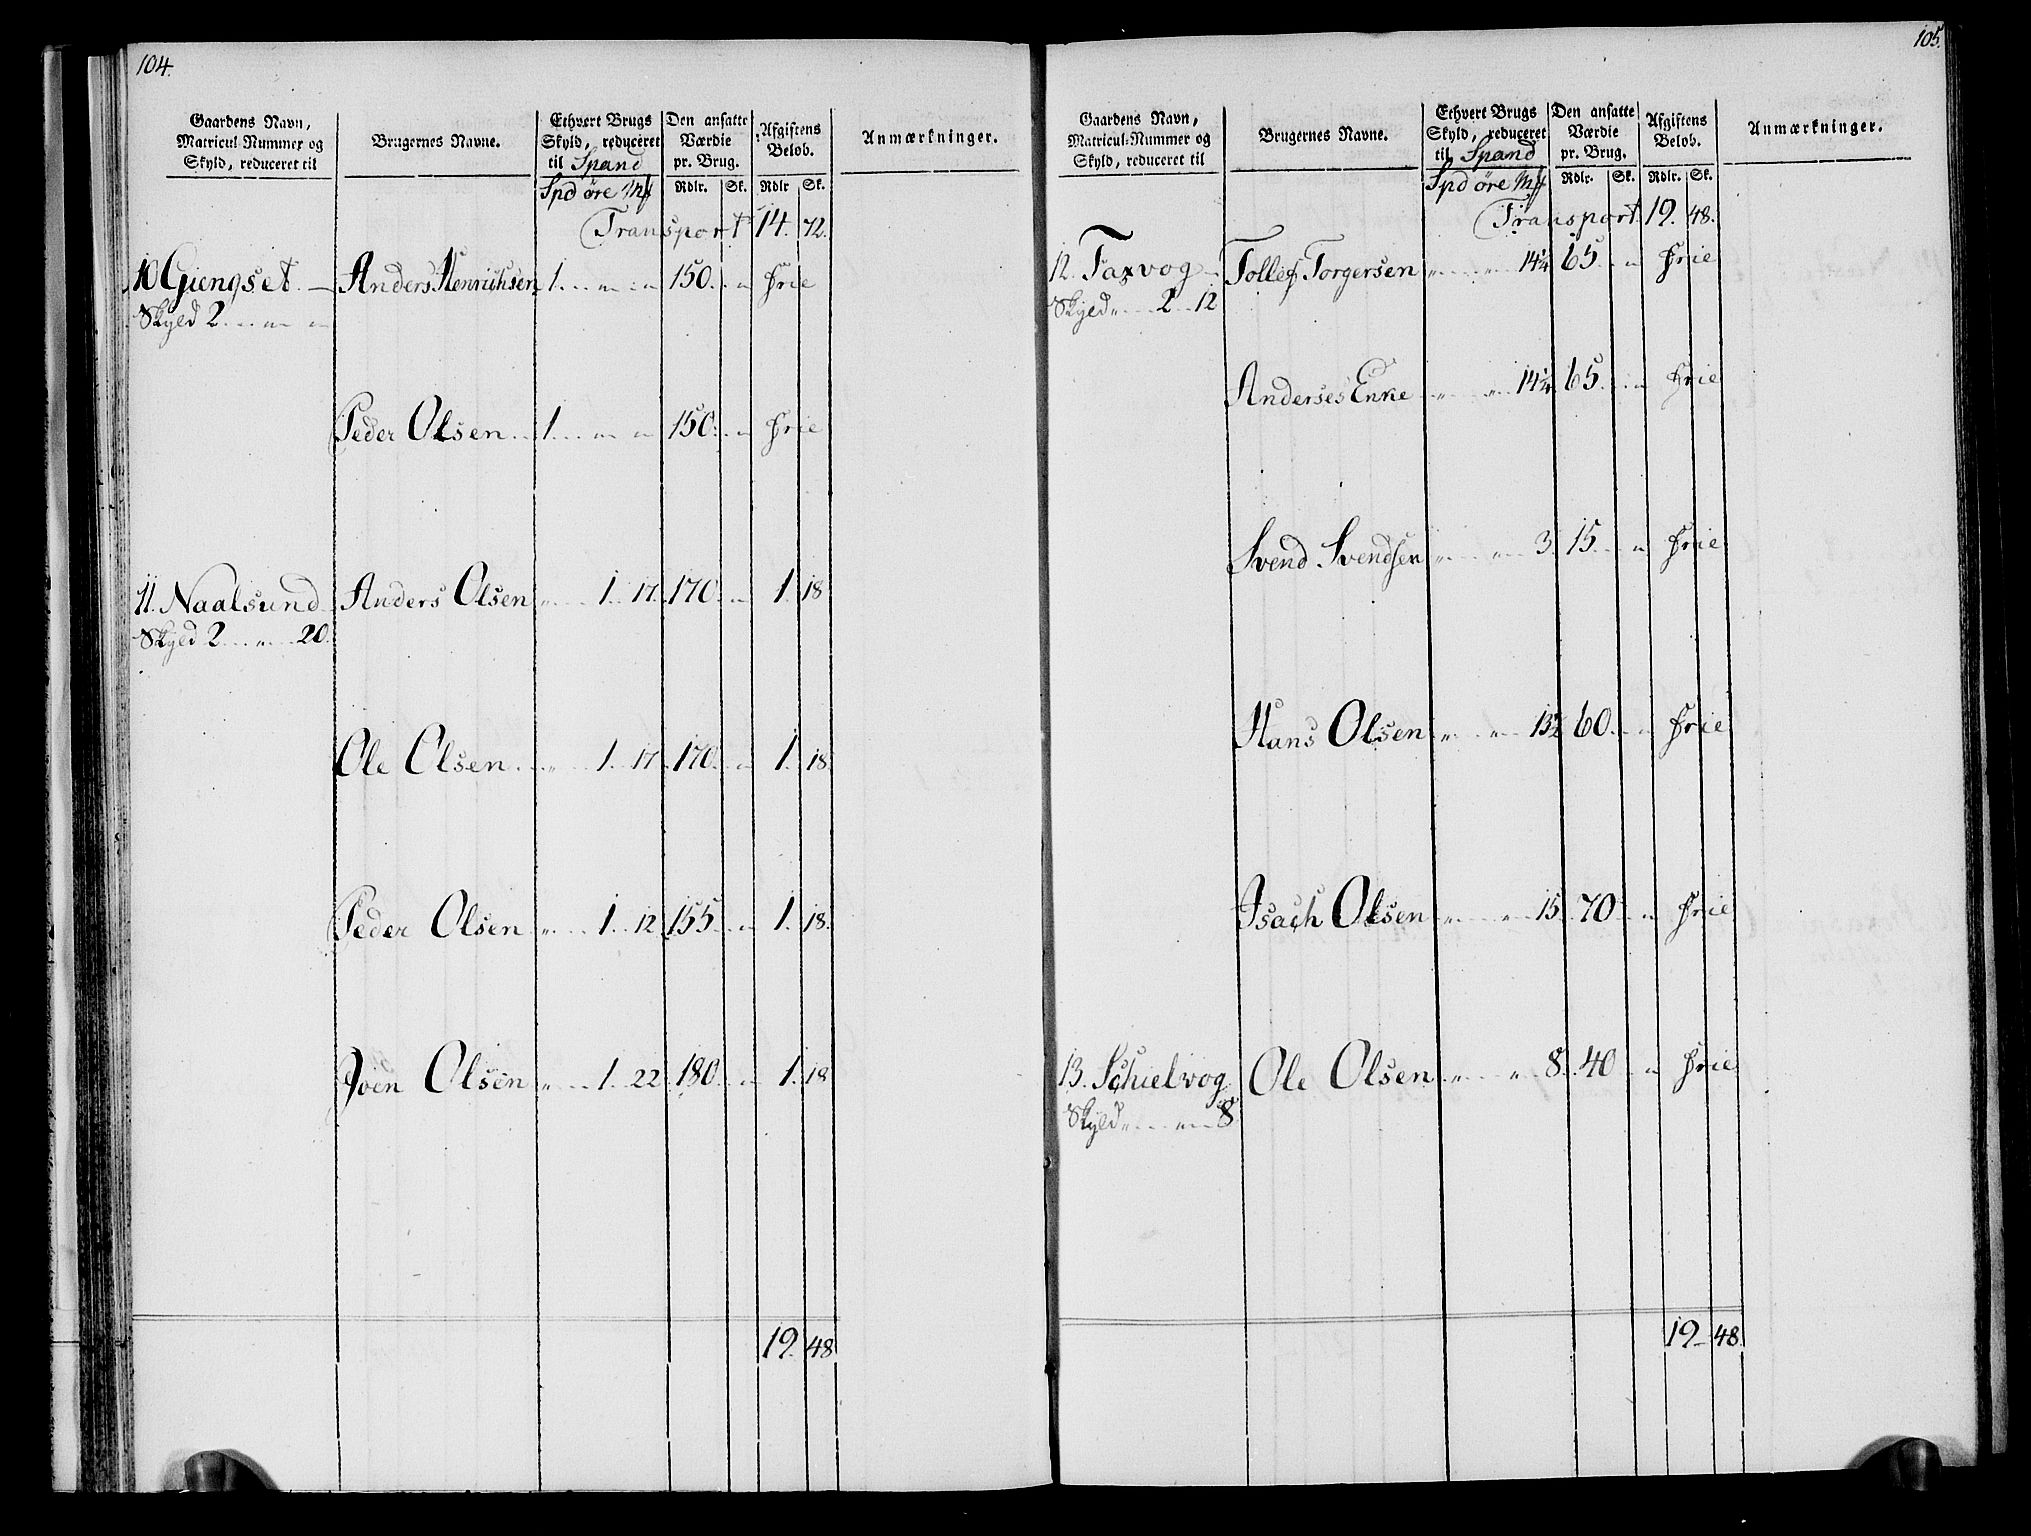 104.
Gaardens Navn,
Matricul-Nummer og
Skyld, reduceret til
Brugernes Navne.
Ethvert Brugs
Skyld, reduceret
til Spand
Den ansatte
Værdie
pr. Brug.
Afgiftens
Beløb.
Anmærkninger.
Spd øre Mk
Rdlr. Sk. Rdlr Sk.
Transport 14. 72.
10 Giengset. — Anders Henrichsen 1. .. „ .. „ 150. .. „ frie
Skyld 2. .. „ .. „
Peder Olsen .. 1. .. „ .. „ 150. .. „ frie
11. Naalsund Anders Olsen „ .. 1. 17. 170. .. „ 1. 18
Skyld 2. .. „ .. 20.
Ole Olsen .. „ .. 1. 17. 170. .. „ 1. 18.
Peder Olsen „ .. 1. 12. 155 .. „ 1. 18.
Joen Olsen „ .. 1. 22. 180. .. „ 1. 18
19. 48
105.
Gaardens Navn,
Matricul-Nummer og
Skyld, reduceret til
Brugernes Navne.
Ethvert Brugs
Skyld, reduceret
til Spand
Den ansatte
Værdie
pr. Brug.
Afgiftens
Beløb.
Anmærkninger.
Spd øre Mk
Rdlr. Sk. Rdlr. Sk.
Transport 19. 48.
12. Taxvog — Tollef Torgersen „ .. „ .. 14¼ 65. .. „ frie
Skyld „ .. 2 .. 12
Anderses Enke „ .. „ .. 14¼ 65. .. „ frie
Svend Svendsen „ .. „ .. 3. 15. .. „ frie
Hans Olsen „ .. „ .. 13½ 60. .. „ frie
Isach Olsen „ .. „ .. 15. 70. .. „ frie
13. Schielvog Ole Olsen „ .. „ .. 8. 40 .. „ frie
Skyld „ .. „ .. 8.
19. 48.